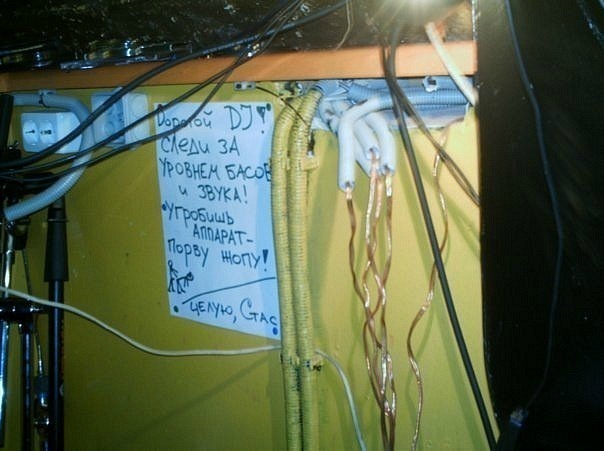 Дорогой DJ!
Следи за
уровнем басов
и звука!
Угробишь
аппарат-
порву жопу!
целую, Стас